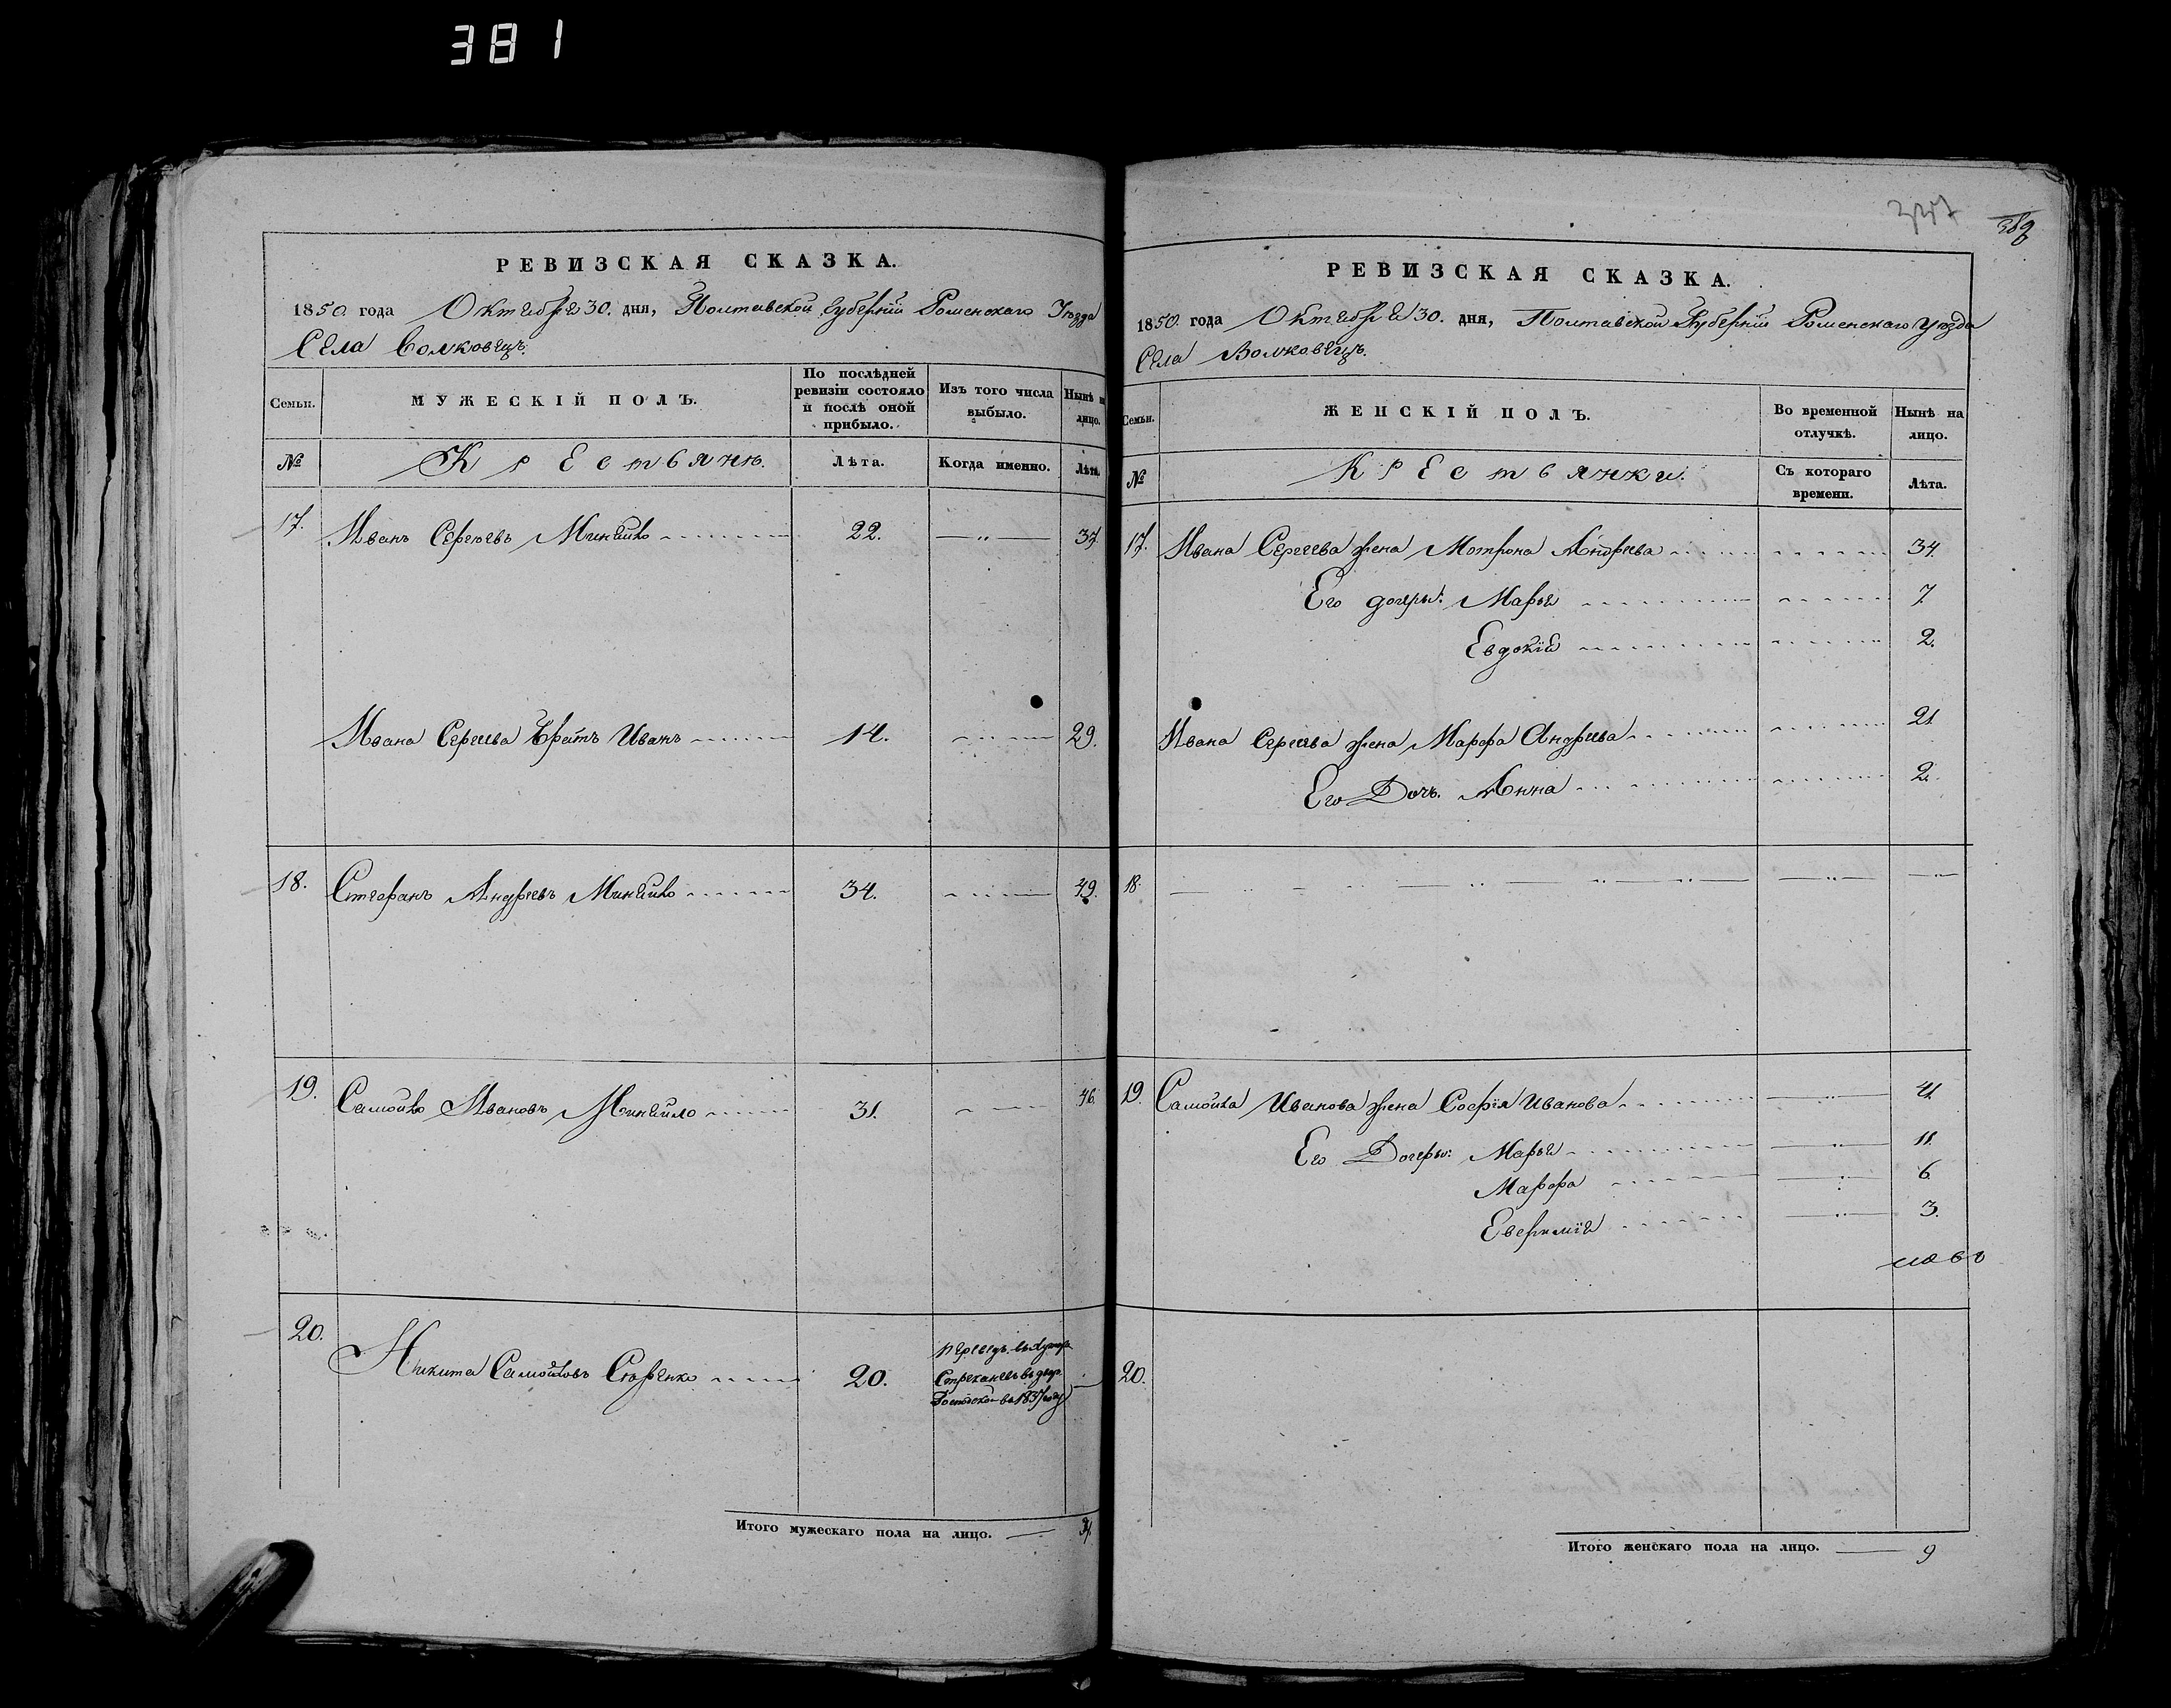 381
РЕВИЗСКАЯ СКАЗКА.
1850 года Октября 30. дня, Полтавской Губерніи Роменскаго Уѣзда
Села Волковецъ.
Семьи.
МУЖЕСКІЙ ПОЛЪ.
По послѣдней ревизіи состояло и послѣ оной прибыло.
Изъ того числа выбыло.
Нынѣ на лицо.
№
Крестьяне.
Лѣта.
Когда именно.
Лѣта.
17. Иванъ Сергѣевъ Минайло 22. 37.
Ивана Сергѣева братъ Иванъ 14. 29.
18. Стефанъ Андреевъ Минайло 34. 49.
19. Самойло Ивановъ Минайло 31. 46.
20. Никита Самойловъ 20.
въ 1837 году
Итого мужескаго пола на лицо. 4.
389
РЕВИЗСКАЯ СКАЗКА.
1850 года Октября 30. дня, Полтавской Губерніи Роменскаго Уѣзда
Села Волковецъ.
Семьи.
ЖЕНСКІЙ ПОЛЪ.
Во временной отлучкѣ.
Нынѣ на лицо.
№
Крестьянки.
Съ котораго времени.
Лѣта.
17. Ивана Сергеева жена Мотрона Андреева 34.
Его дочери: Марья 7.
Евдокія 2.
Ивана Сергеева жена Марфа Андреева 21.
Его Дочь Анна 2.
18.
19. Самойла Иванова жена Софія Иванова 41.
Его Дочери: Марья 11.
Марфа 6.
Евфимія 3.
20.
Итого женскаго пола на лицо. 9